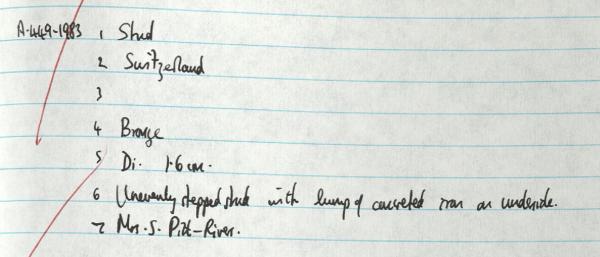 A-449-1983 1 Stud
2 Switzerland
3
4 Bronze
5 Di. 1.6 cm.
6 Unevenly stepped stud with lump of concreted iron on underside.
7 Mrs. S. Pitt-Rivers.